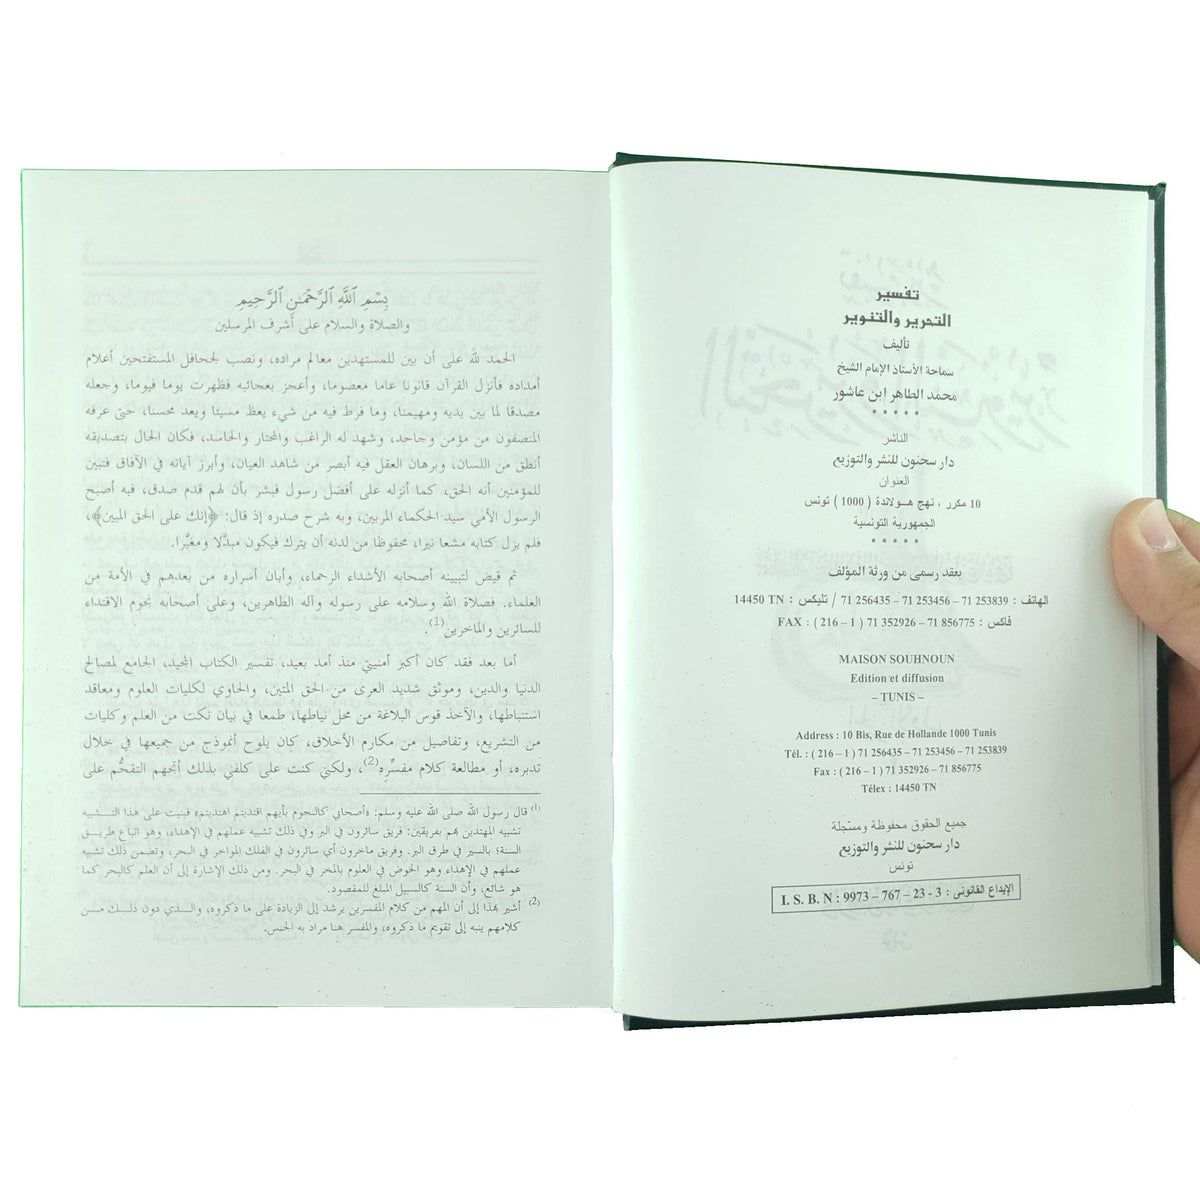 تفسير
التحرير والتنوير
تأليف
سماحة الأستاذ الإمام الشيخ
محمد الطاهر ابن عاشور
* * * * *
الناشر
دار سحنون للنشر والتوزيع
العنوان
10 مكرر ، نهج هولاندة ( 1000 ) تونس
الجمهورية التونسية
* * * * *
بعقد رسمى من ورثة المؤلف
الهاتف : 253839 71 – 253456 71 – 256435 71 / تليكس : 14450 TN
فاكس : 856775 71 – 352926 71 ( 1 – 216 ) : FAX
MAISON SOUHNOUN
Edition et diffusion
– TUNIS –
Address : 10 Bis, Rue de Hollande 1000 Tunis
Tél. : ( 216 – 1 ) 71 256435 – 71 253456 – 71 253839
Fax : ( 216 – 1 ) 71 352926 – 71 856775
Télex : 14450 TN
جميع الحقوق محفوظة ومسجّلة
دار سحنون للنشر والتوزيع
تونس
الإيداع القانونى : I. S. B. N : 9973 – 767 – 23 - 3
بِسْمِ ٱللَّهِ ٱلرَّحْمَٰنِ ٱلرَّحِيمِ
والصلاة والسلام على أشرف المرسلين
الحمد لله على أن بين للمستهدين معالم مراده، ونصب لجحافل المستفتحين أعلام
أمداده فأنزل القرآن قانونا عاما معصوما، وأعجز بعجائبه فظهرت يوما فيوما، وجعله
مصدقا لما بين يديه ومهيمنا، وما فرط فيه من شيء يعظ مسيئا ويعد محسنا، حتى عرفه
المنصفون من مؤمن وجاحد، وشهد له الراغب والمحتار والحاسد، فكان الحال بتصديقه
أنطق من اللسان، وبرهان العقل فيه أبصر من شاهد العيان، وأبرز آياته في الآفاق فتبين
للمؤمنين أنه الحق، كما أنزله على أفضل رسول فبشر بأن لهم قدم صدق، فبه أصبح
الرسول الأمي سيد الحكماء المربين، وبه شرح صدره إذ قال: ﴿إنك على الحق المبين﴾،
فلم يزل كتابه مشعا نيرا، محفوظا من لدنه أن يترك فيكون مبدَّلا ومغيَّرا.
ثم قيض لتبيينه أصحابه الأشداء الرحماء، وأبان أسراره من بعدهم في الأمة من
العلماء. فصلاة الله وسلامه على رسوله وآله الطاهرين، وعلى أصحابه نجوم الاقتداء
للسائرين والماخرين(1).
أما بعد فقد كان أكبر أمنيتي منذ أمد بعيد، تفسير الكتاب المجيد، الجامع لمصالح
الدنيا والدين، وموثق شديد العرى من الحق المتين، والحاوي لكليات العلوم ومعاقد
استنباطها، والآخذ قوس البلاغة من محل نياطها، طمعا في بيان نكت من العلم وكليات
من التشريع، وتفاصيل من مكارم الأخلاق، كان يلوح أنموذج من جميعها في خلال
تدبره، أو مطالعة كلام مفسِّره(2)، ولكني كنت على كلفي بذلك أتجهم التقحُّم على
(1) قال رسول الله صلى الله عليه وسلم: «أصحابي كالنجوم بأيهم اقتديتم اهتديتم» فبنيت على هذا التشبيه
تشبيه المهتدين بهم بفريقين: فريق سائرون في البر وفي ذلك تشبيه عملهم في الإهداء، وهو اتباع طريق
السنة؛ بالسير في طرق البر. وفريق ماخرون أي سائرون في الفلك المواخر في البحر، وتضمن ذلك تشبيه
عملهم في الإهداء وهو الخوض في العلوم بالمخر في البحر. ومن ذلك الإشارة إلى أن العلم كالبحر كما
هو شائع، وأن السنة كالسبيل المبلغ للمقصود.
(2) أشير بهذا إلى أن المهم من كلام المفسرين يرشد إلى الزيادة على ما ذكروه، والذي دون ذلك من
كلامهم ينبه إلى تقويم ما ذكروه، والمفسر هنا مراد به الجنس.